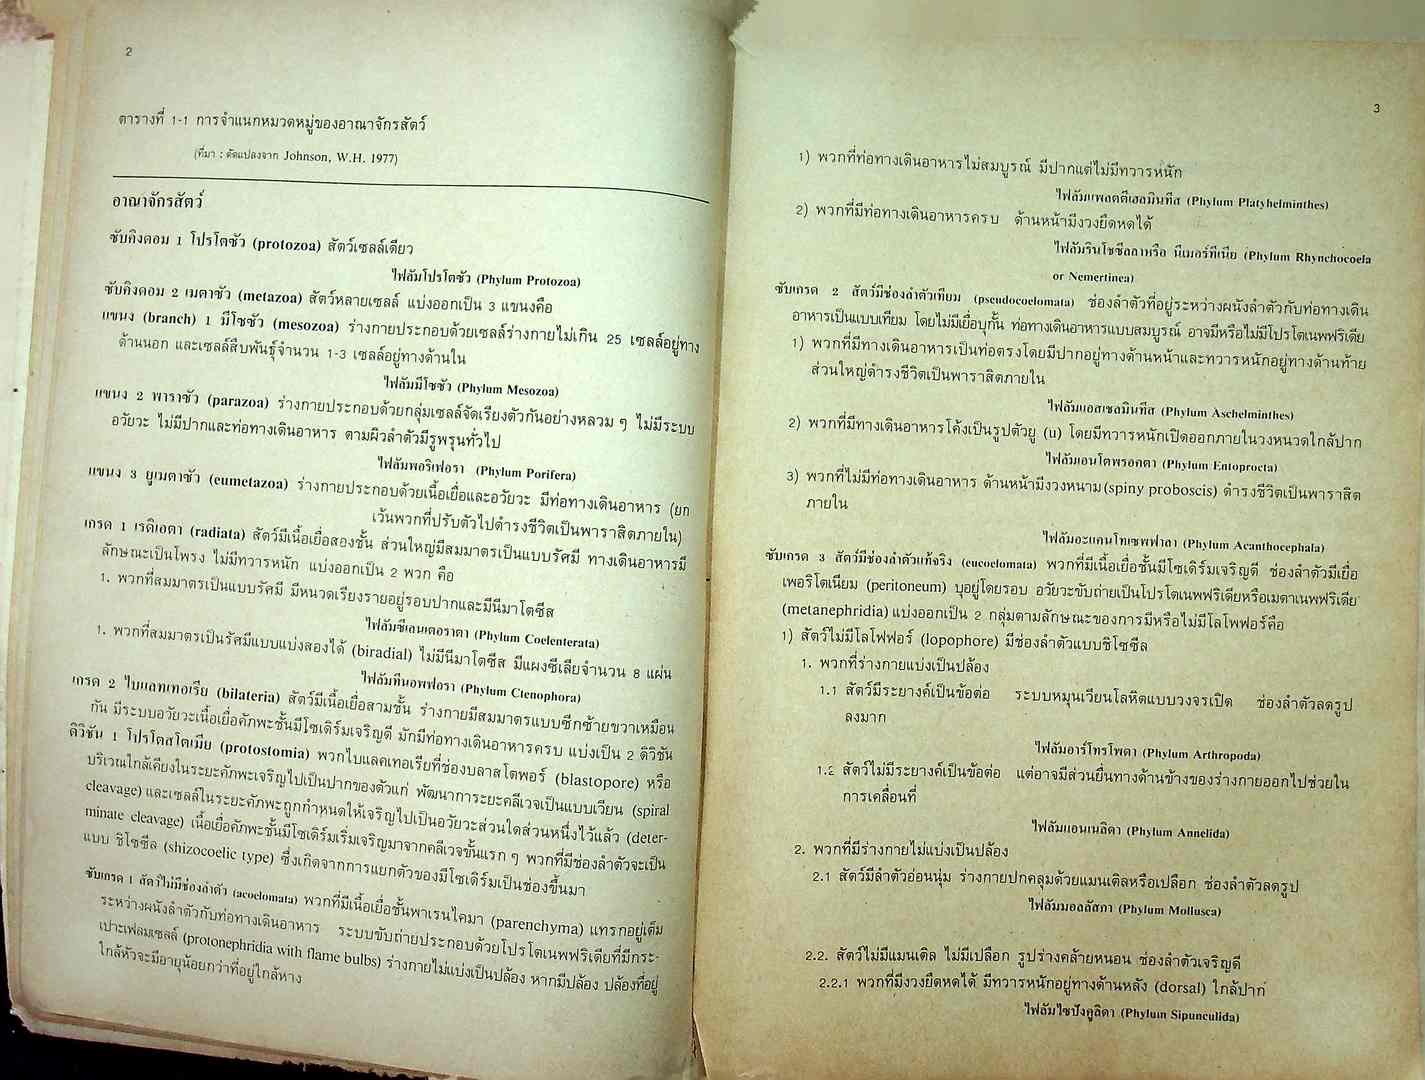 2
ตารางที่ 1-1 การจำแนกหมวดหมู่ของอาณาจักรสัตว์
(ที่มา : ดัดแปลงจาก Johnson, W.H. 1977)
อาณาจักรสัตว์
ซับคิงดอม 1 โปรโตซัว (protozoa) สัตว์เซลล์เดียว
ไฟลัมโปรโตซัว (Phylum Protozoa)
ซับคิงดอม 2 เมตาซัว (metazoa) สัตว์หลายเซลล์ แบ่งออกเป็น 3 แขนงคือ
แขนง (branch) 1 มีโซซัว (mesozoa) ร่างกายประกอบด้วยเซลล์ร่างกายไม่เกิน 25 เซลล์อยู่ทาง
ด้านนอก และเซลล์สืบพันธุ์จำนวน 1-3 เซลล์อยู่ทางด้านใน
ไฟลัมมีโซซัว (Phylum Mesozoa)
แขนง 2 พาราซัว (parazoa) ร่างกายประกอบด้วยกลุ่มเซลล์จัดเรียงตัวกันอย่างหลวม ๆ ไม่มีระบบ
อวัยวะ ไม่มีปากและท่อทางเดินอาหาร ตามผิวลำตัวมีรูพรุนทั่วไป
ไฟลัมพอริเฟอรา (Phylum Porifera)
แขนง 3 ยูเมตาซัว (eumetazoa) ร่างกายประกอบด้วยเนื้อเยื่อและอวัยวะ มีท่อทางเดินอาหาร (ยก
เว้นพวกที่ปรับตัวไปดำรงชีวิตเป็นพาราสิตภายใน)
เกรด 1 เรดิเอตา (radiata) สัตว์มีเนื้อเยื่อสองชั้น ส่วนใหญ่มีสมมาตรเป็นแบบรัศมี ทางเดินอาหารมี
ลักษณะเป็นโพรง ไม่มีทวารหนัก แบ่งออกเป็น 2 พวก คือ
1. พวกที่สมมาตรเป็นแบบรัศมี มีหนวดเรียงรายอยู่รอบปากและมีนีมาโตซีส
ไฟลัมซีเลนเตอราตา (Phylum Coelenterata)
1. พวกที่สมมาตรเป็นรัศมีแบบแบ่งสองได้ (biradial) ไม่มีนีมาโตซีส มีแผงซีเลียจำนวน 8 แผ่น
ไฟลัมทีนอพฟอรา (Phylum Ctenophora)
เกรด 2 ไบแลทเทอเรีย (bilateria) สัตว์มีเนื้อเยื่อสามชั้น ร่างกายมีสมมาตรแบบซีกซ้ายขวาเหมือน
กัน มีระบบอวัยวะเนื้อเยื่อคัภพะชั้นมีโซเดิร์มเจริญดี มักมีท่อทางเดินอาหารครบ แบ่งเป็น 2 ดิวิชัน
ดิวิชัน 1 โปรโตสโตเมีย (protostomia) พวกไบแลคเทอเรียที่ช่องบลาสโตพอร์ (blastopore) หรือ
บริเวณใกล้เคียงในระยะคัภพะเจริญไปเป็นปากของตัวแก่ พัฒนาการระยะคลีเวจเป็นแบบเวียน (spiral
cleavage) และเซลล์ในระยะคัภพะถูกกำหนดให้เจริญไปเป็นอวัยวะส่วนใดส่วนหนึ่งไว้แล้ว (deter-
minate cleavage) เนื้อเยื่อคัภพะชั้นมีโซเดิร์มเริ่มเจริญมาจากคลีเวจขั้นแรก ๆ พวกที่มีช่องลำตัวจะเป็น
แบบ ชิโซซีล (shizocoelic type) ซึ่งเกิดจากการแยกตัวของมีโซเดิร์มเป็นช่องขึ้นมา
ซับเกรด 1 สัตว์ไม่มีช่องลำตัว (acoelomata) พวกที่มีเนื้อเยื่อชั้นพาเรนไคมา (parenchyma) แทรกอยู่เต็ม
ระหว่างผนังลำตัวกับท่อทางเดินอาหาร ระบบขับถ่ายประกอบด้วยโปรโตเนพฟริเดียที่มีกระ-
เปาะเฟลมเซลล์ (protonephridia with flame bulbs) ร่างกายไม่แบ่งเป็นปล้อง หากมีปล้อง ปล้องที่อยู่
ใกล้หัวจะมีอายุน้อยกว่าที่อยู่ใกล้หาง
3
1) พวกที่ท่อทางเดินอาหารไม่สมบูรณ์ มีปากแต่ไม่มีทวารหนัก
ไฟลัมแพลตตีเฮลมินทีส (Phylum Platyhelminthes)
2) พวกที่มีท่อทางเดินอาหารครบ ด้านหน้ามีงวงยืดหดได้
ไฟลัมรินโชซีลลาหรือ นีเมอร์ทีเนีย (Phylum Rhynchocoela
or Nemertinea)
ซับเกรด 2 สัตว์มีช่องลำตัวเทียม (pseudocoelomata) ช่องลำตัวที่อยู่ระหว่างผนังลำตัวกับท่อทางเดิน
อาหารเป็นแบบเทียม โดยไม่มีเยื่อบุกั้น ท่อทางเดินอาหารแบบสมบูรณ์ อาจมีหรือไม่มีโปรโตเนพฟริเดีย
1) พวกที่มีทางเดินอาหารเป็นท่อตรงโดยมีปากอยู่ทางด้านหน้าและทวารหนักอยู่ทางด้านท้าย
ส่วนใหญ่ดำรงชีวิตเป็นพาราสิตภายใน
ไฟลัมแอสเชลมินทีส (Phylum Aschelminthes)
2) พวกที่มีทางเดินอาหารโค้งเป็นรูปตัวยู (u) โดยมีทวารหนักเปิดออกภายในวงหนวดใกล้ปาก
ไฟลัมเอนโตพรอคตา (Phylum Entoprocta)
3) พวกที่ไม่มีท่อทางเดินอาหาร ด้านหน้ามีงวงหนาม (spiny proboscis) ดำรงชีวิตเป็นพาราสิต
ภายใน
ไฟลัมอะแคนโทเซพฟาลา (Phylum Acanthocephala)
ซับเกรด 3 สัตว์มีช่องลำตัวแท้จริง (eucoelomata) พวกที่มีเนื้อเยื่อชั้นมีโซเดิร์มเจริญดี ช่องลำตัวมีเยื่อ
เพอริโตเนียม (peritoneum) บุอยู่โดยรอบ อวัยวะขับถ่ายเป็นโปรโตเนพฟริเดียหรือเมตาเนพฟริเดีย
(metanephridia) แบ่งออกเป็น 2 กลุ่มตามลักษณะของการมีหรือไม่มีโลโพฟอร์คือ
1) สัตว์ไม่มีโลโฟฟอร์ (lopophore) มีช่องลำตัวแบบชิโซซีล
1. พวกที่ร่างกายแบ่งเป็นปล้อง
1.1 สัตว์มีระยางค์เป็นข้อต่อ ระบบหมุนเวียนโลหิตแบบวงจรเปิด ช่องลำตัวลดรูป
ลงมาก
ไฟลัมอาร์โทรโพดา (Phylum Arthropoda)
1.2 สัตว์ไม่มีระยางค์เป็นข้อต่อ แต่อาจมีส่วนยื่นทางด้านข้างของร่างกายออกไปช่วยใน
การเคลื่อนที่
ไฟลัมแอนเนลิดา (Phylum Annelida)
2. พวกที่มีร่างกายไม่แบ่งเป็นปล้อง
2.1 สัตว์มีลำตัวอ่อนนุ่ม ร่างกายปกคลุมด้วยแมนเติลหรือเปลือก ช่องลำตัวลดรูป
ไฟลัมมอลลัสกา (Phylum Mollusca)
2.2. สัตว์ไม่มีแมนเติล ไม่มีเปลือก รูปร่างคล้ายหนอน ช่องลำตัวเจริญดี
2.2.1 พวกที่มีงวงยืดหดได้ มีทวารหนักอยู่ทางด้านหลัง (dorsal) ใกล้ปาก
ไฟลัมไซปังคูลิดา (Phylum Sipunculida)